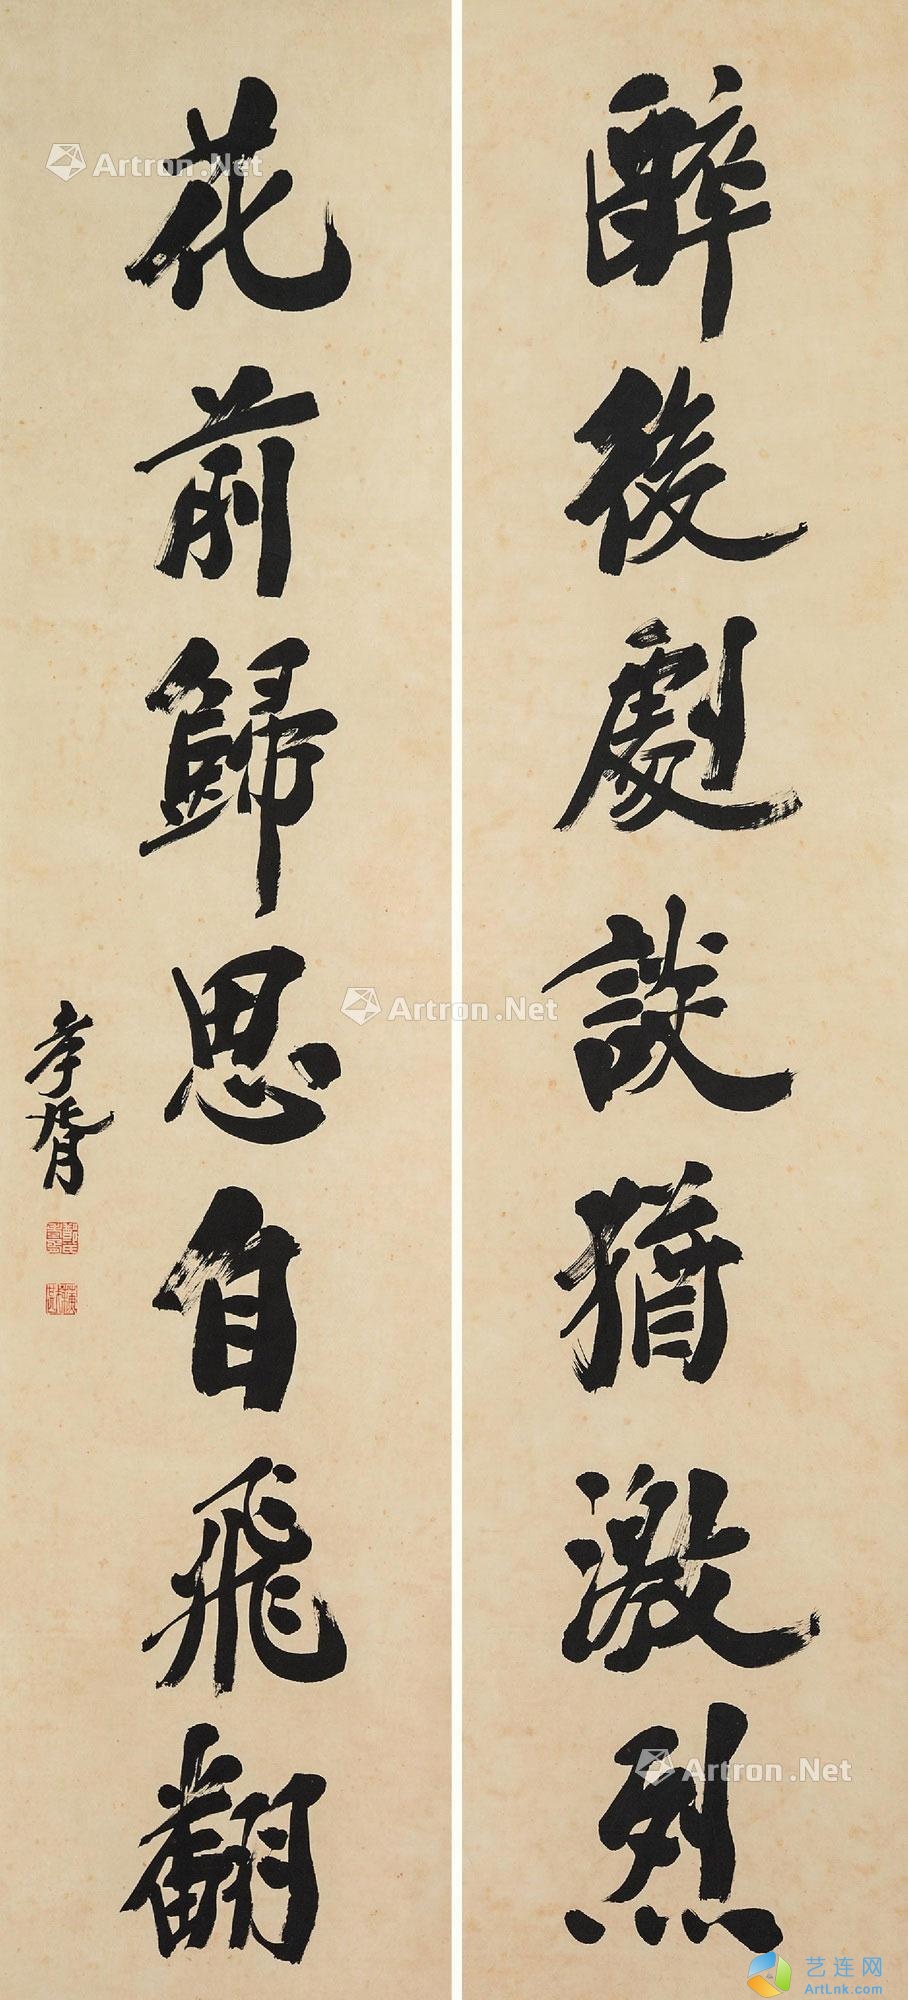 醉後劇談猶激烈
花前歸思自飛翻
孝胥
Artron.Net
Artron.Net
Artron.Net
艺连网
ArtLnk.com